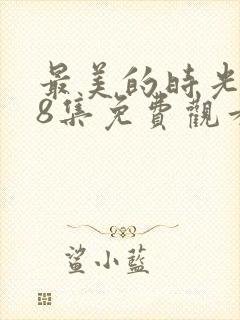 最美的時光
8集免費觀
鯊小藍